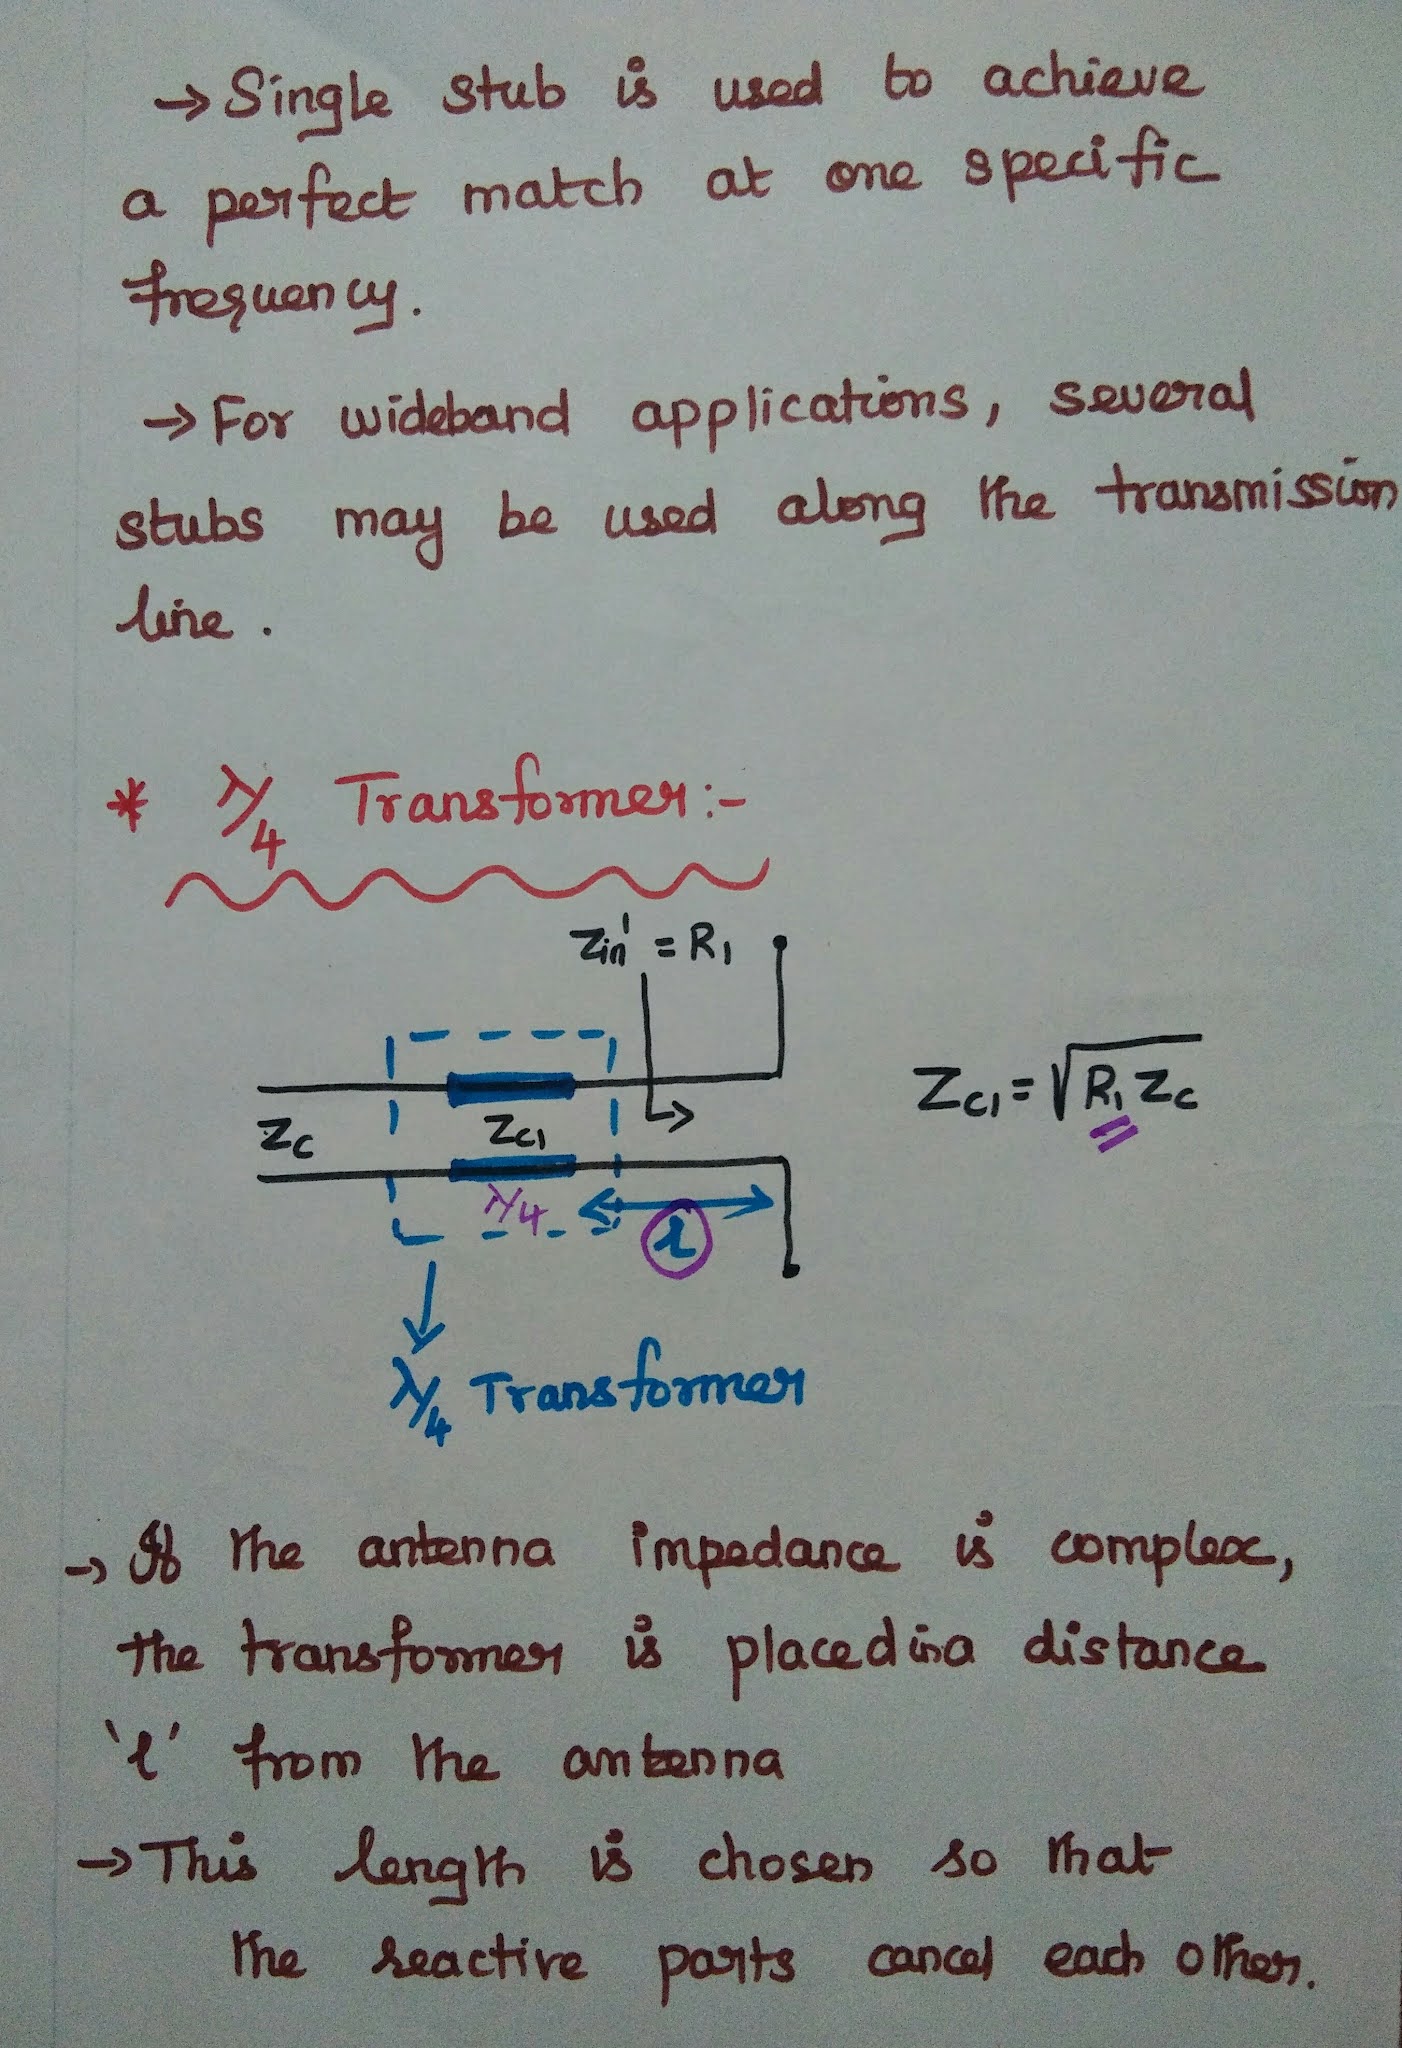 → Single stub is used to achieve
a perfect match at one specific
frequency.
→ For wideband applications, several
stubs may be used along the transmission
line.
* λ/4 Transformer:-
Zin' = R1
Zc
Zc1
λ/4
l
Zc1 = √R1 Zc
λ/4 Transformer
→ If the antenna impedance is complex,
the transformer is placed in a distance
'l' from the antenna
→ This length is chosen so that
the reactive parts cancel each other.